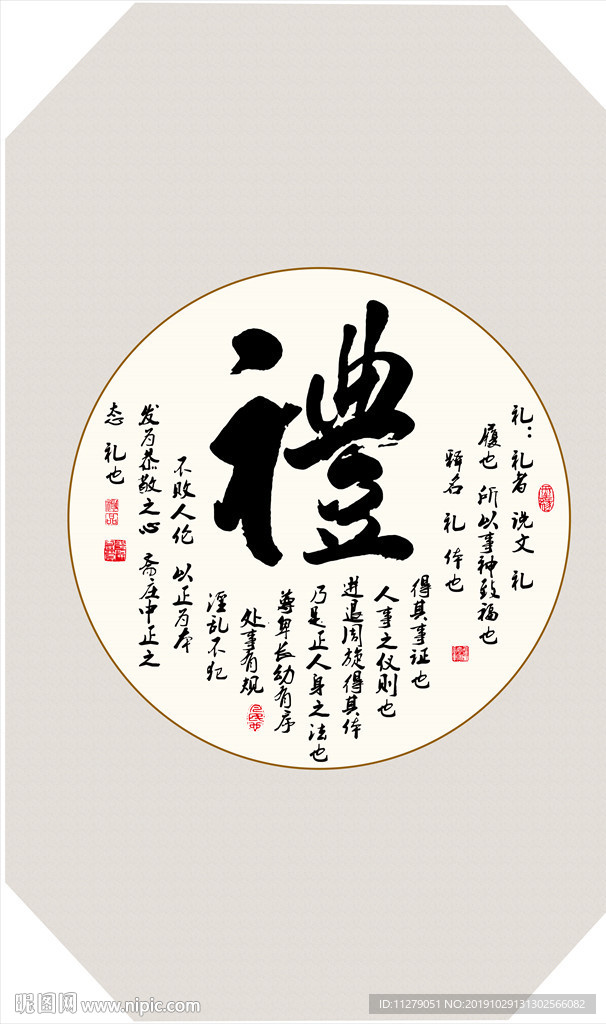 禮
礼：礼者 说文 礼
履也 所以事神致福也
释名 礼 体也
得其事证也
人事之仪则也
进退周旋得其体
乃是正人身之法也
尊卑长幼有序
处事有规
淫乱不犯
不败人伦 以正为本
发为恭敬之心 斋庄中正之
态 礼也
昵图网 www.nipic.com
ID:11279051 NO:20191029131302566082